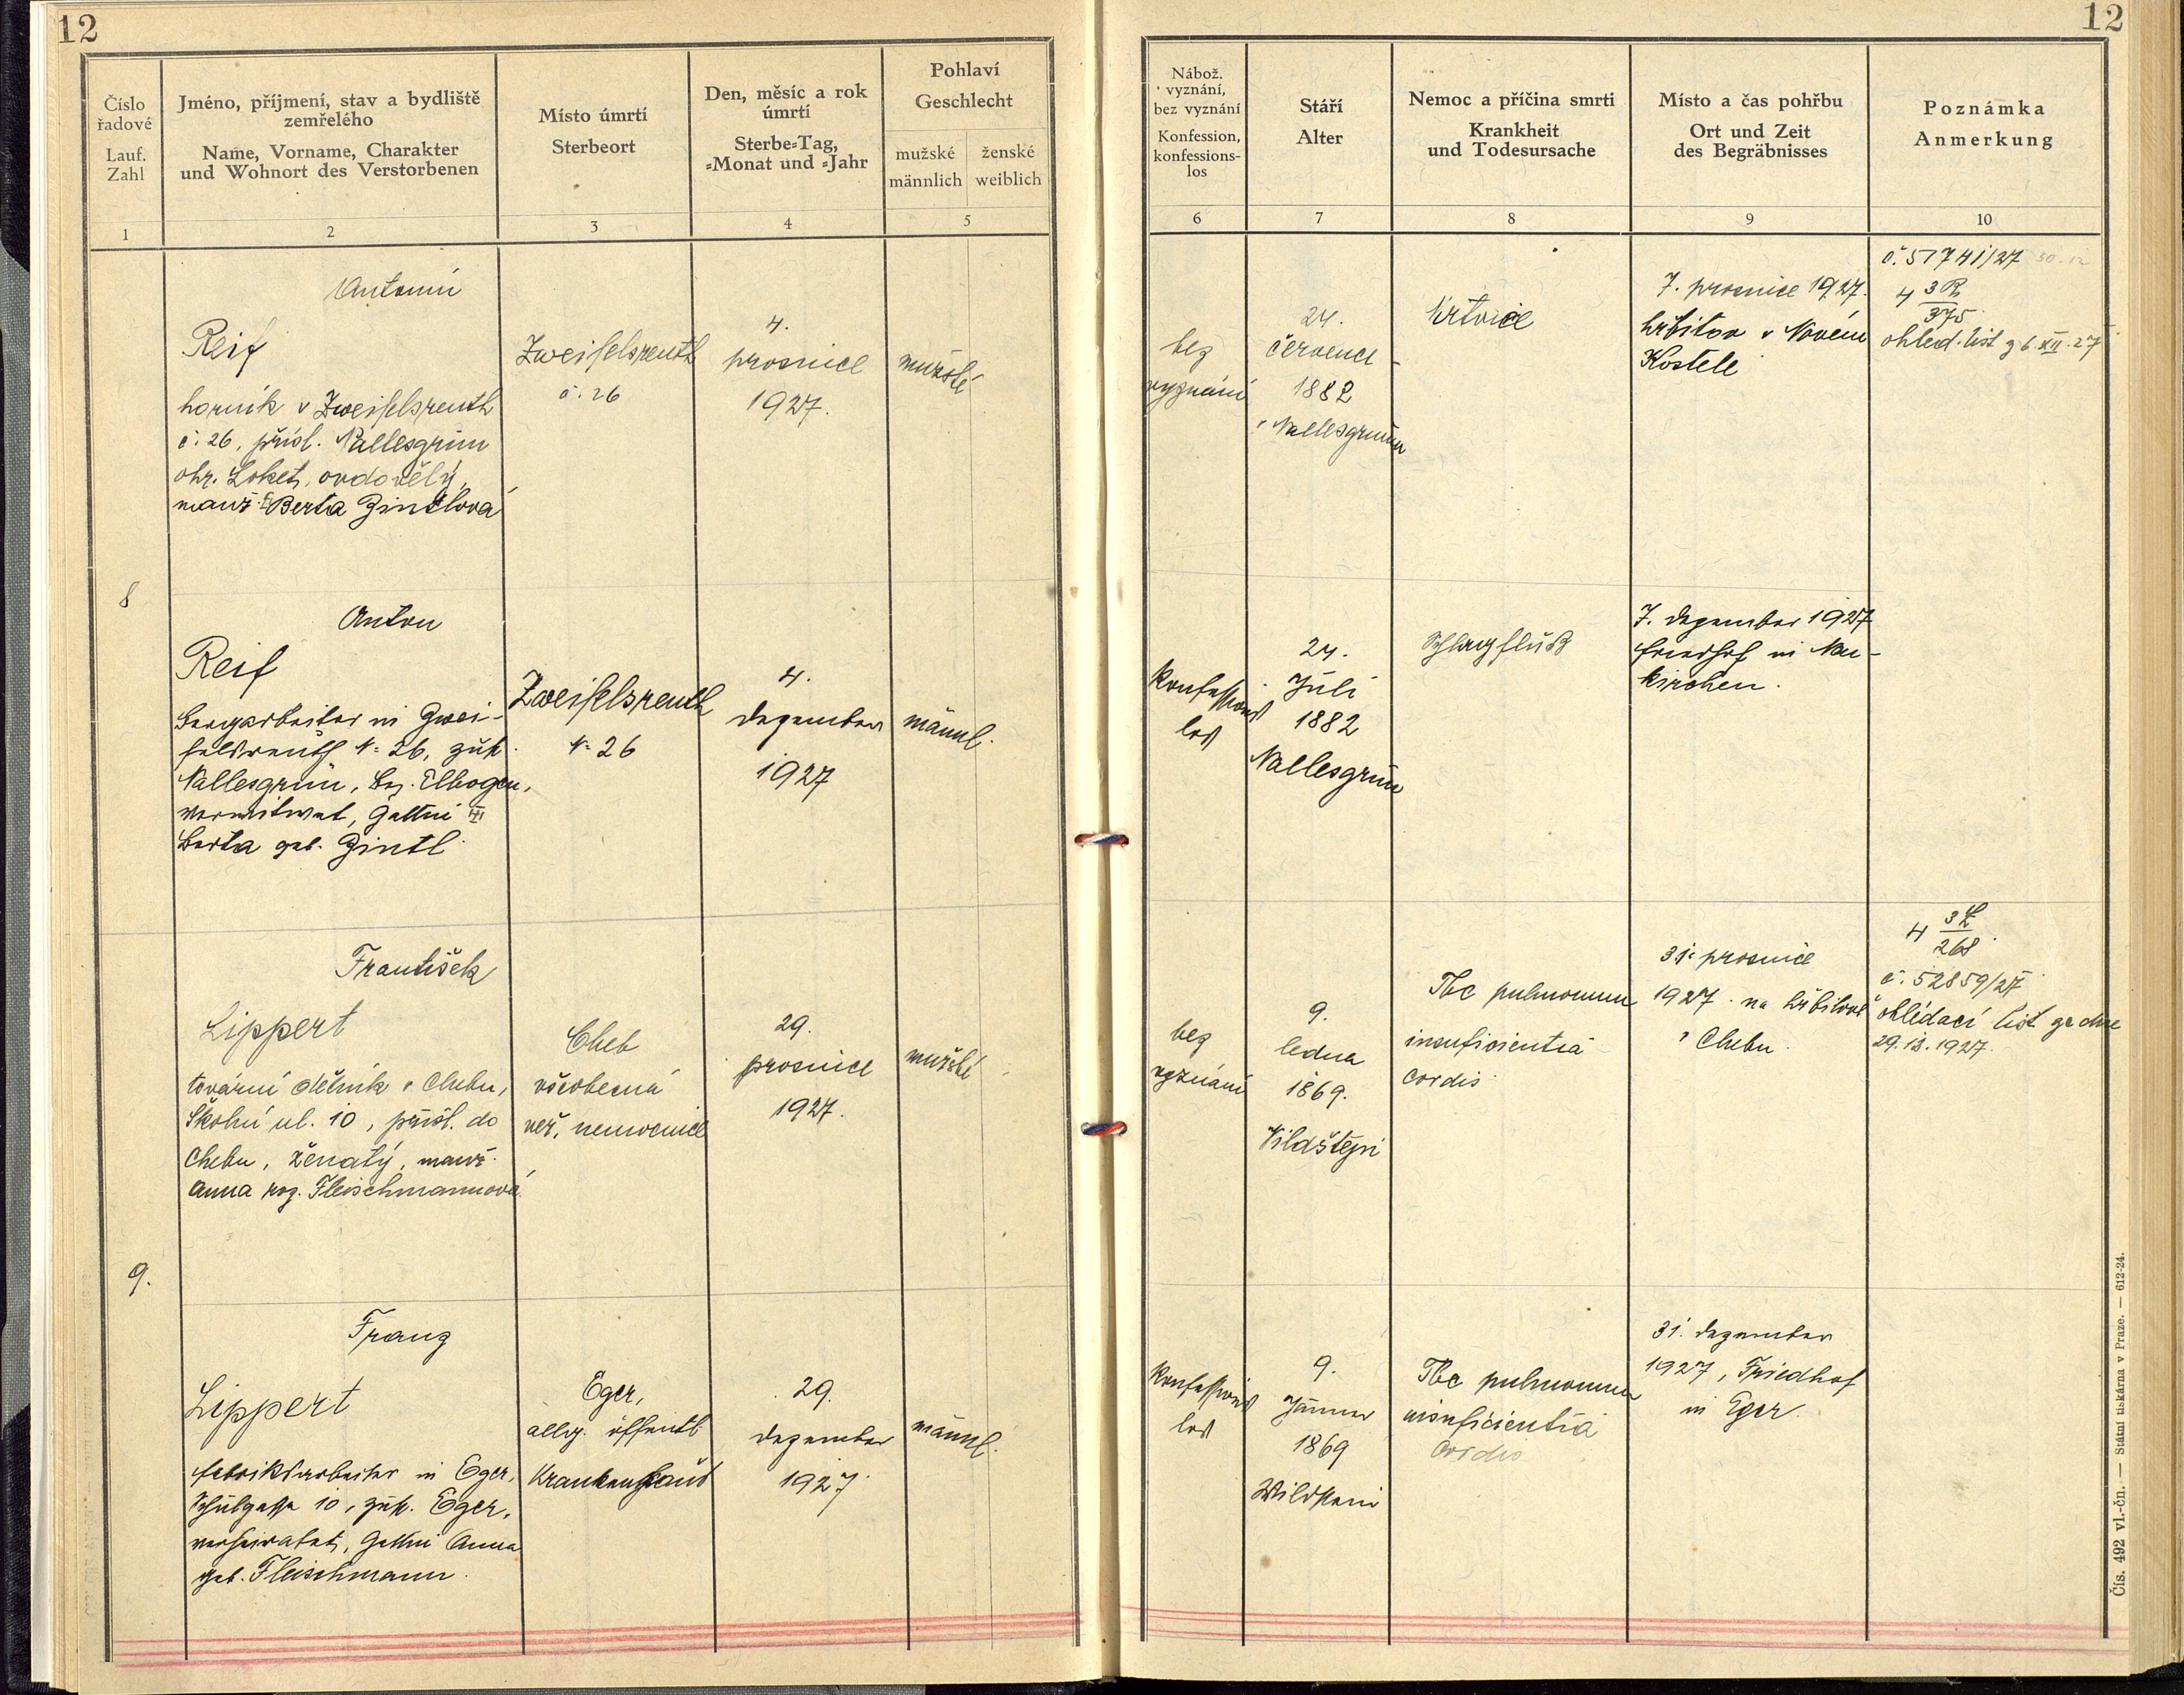 12
12
Číslo
řadové
Lauf.
Zahl
Jméno, příjmení, stav a bydliště
zemřelého
Name, Vorname, Charakter
und Wohnort des Verstorbenen
Místo úmrtí
Sterbeort
Den, měsíc a rok
úmrtí
Sterbe=Tag,
=Monat und =Jahr
Pohlaví
Geschlecht
mužské
männlich
ženské
weiblich
Nábož.
vyznání,
bez vyznání
Konfession,
konfessions-
los
Stáří
Alter
Nemoc a příčina smrti
Krankheit
und Todesursache
Místo a čas pohřbu
Ort und Zeit
des Begräbnisses
Poznámka
Anmerkung
1
2
3
4
5
6
7
8
9
10
8
Antonín
Reif
horník v Zweifelsreuth
č. 26, přísl. Nallesgrün
okr. Loket, ovdovělý,
manž. Berta Zintlová
Zweifelsreuth
č. 26
4.
prosince
1927.
mužské
bez
vyznání
24.
července
1882
v Nallesgrünu
Mrtvice
7. prosince 1927.
hřbitov v Novém
Kostele
č. 51741/27
4 3R
375
ohled. list z 6.XII.27
Anton
Reif
Bergarbeiter in Zwei-
felsreuth N: 26, zust.
Nallesgrün, Bez. Elbogen,
verwitwet, Gattin
Berta geb. Zintl.
Zweifelsreuth
N: 26
4.
Dezember
1927
männl.
Konfessions
los
24.
Juli
1882
Nallesgrün
Schlagfluß
7. Dezember 1927
Friedhof in Neu-
kirchen.
9.
František
Lippert
tovární dělník v Chebu,
Školní ul. 10, přísl. do
Chebu, ženatý, manž.
Anna roz. Fleischmannová
Cheb
všeobecná
veř. nemocnice
29.
prosince
1927.
mužské
bez
vyznání
9.
ledna
1869.
Vildštejn
Tbc pulmonum
insuficientia
cordis
31. prosince
1927. na hřbitově
v Chebu.
4 3L
268.
č. 52859/27
ohledací list ze dne
29.12.1927.
Franz
Lippert
Fabriksarbeiter in Eger,
Schulgasse 10, zust. Eger,
verheiratet, Gattin Anna
geb. Fleischmann.
Eger,
allg. öffentl.
Krankenhaus
29.
Dezember
1927.
männl.
Konfessions
los
9.
Jänner
1869
Wildstein
Tbc pulmonum
insuficientia
cordis
31. Dezember
1927, Friedhof
in Eger.
Čís. 492 vl.-čn. — Státní tiskárna v Praze. — 612-24.